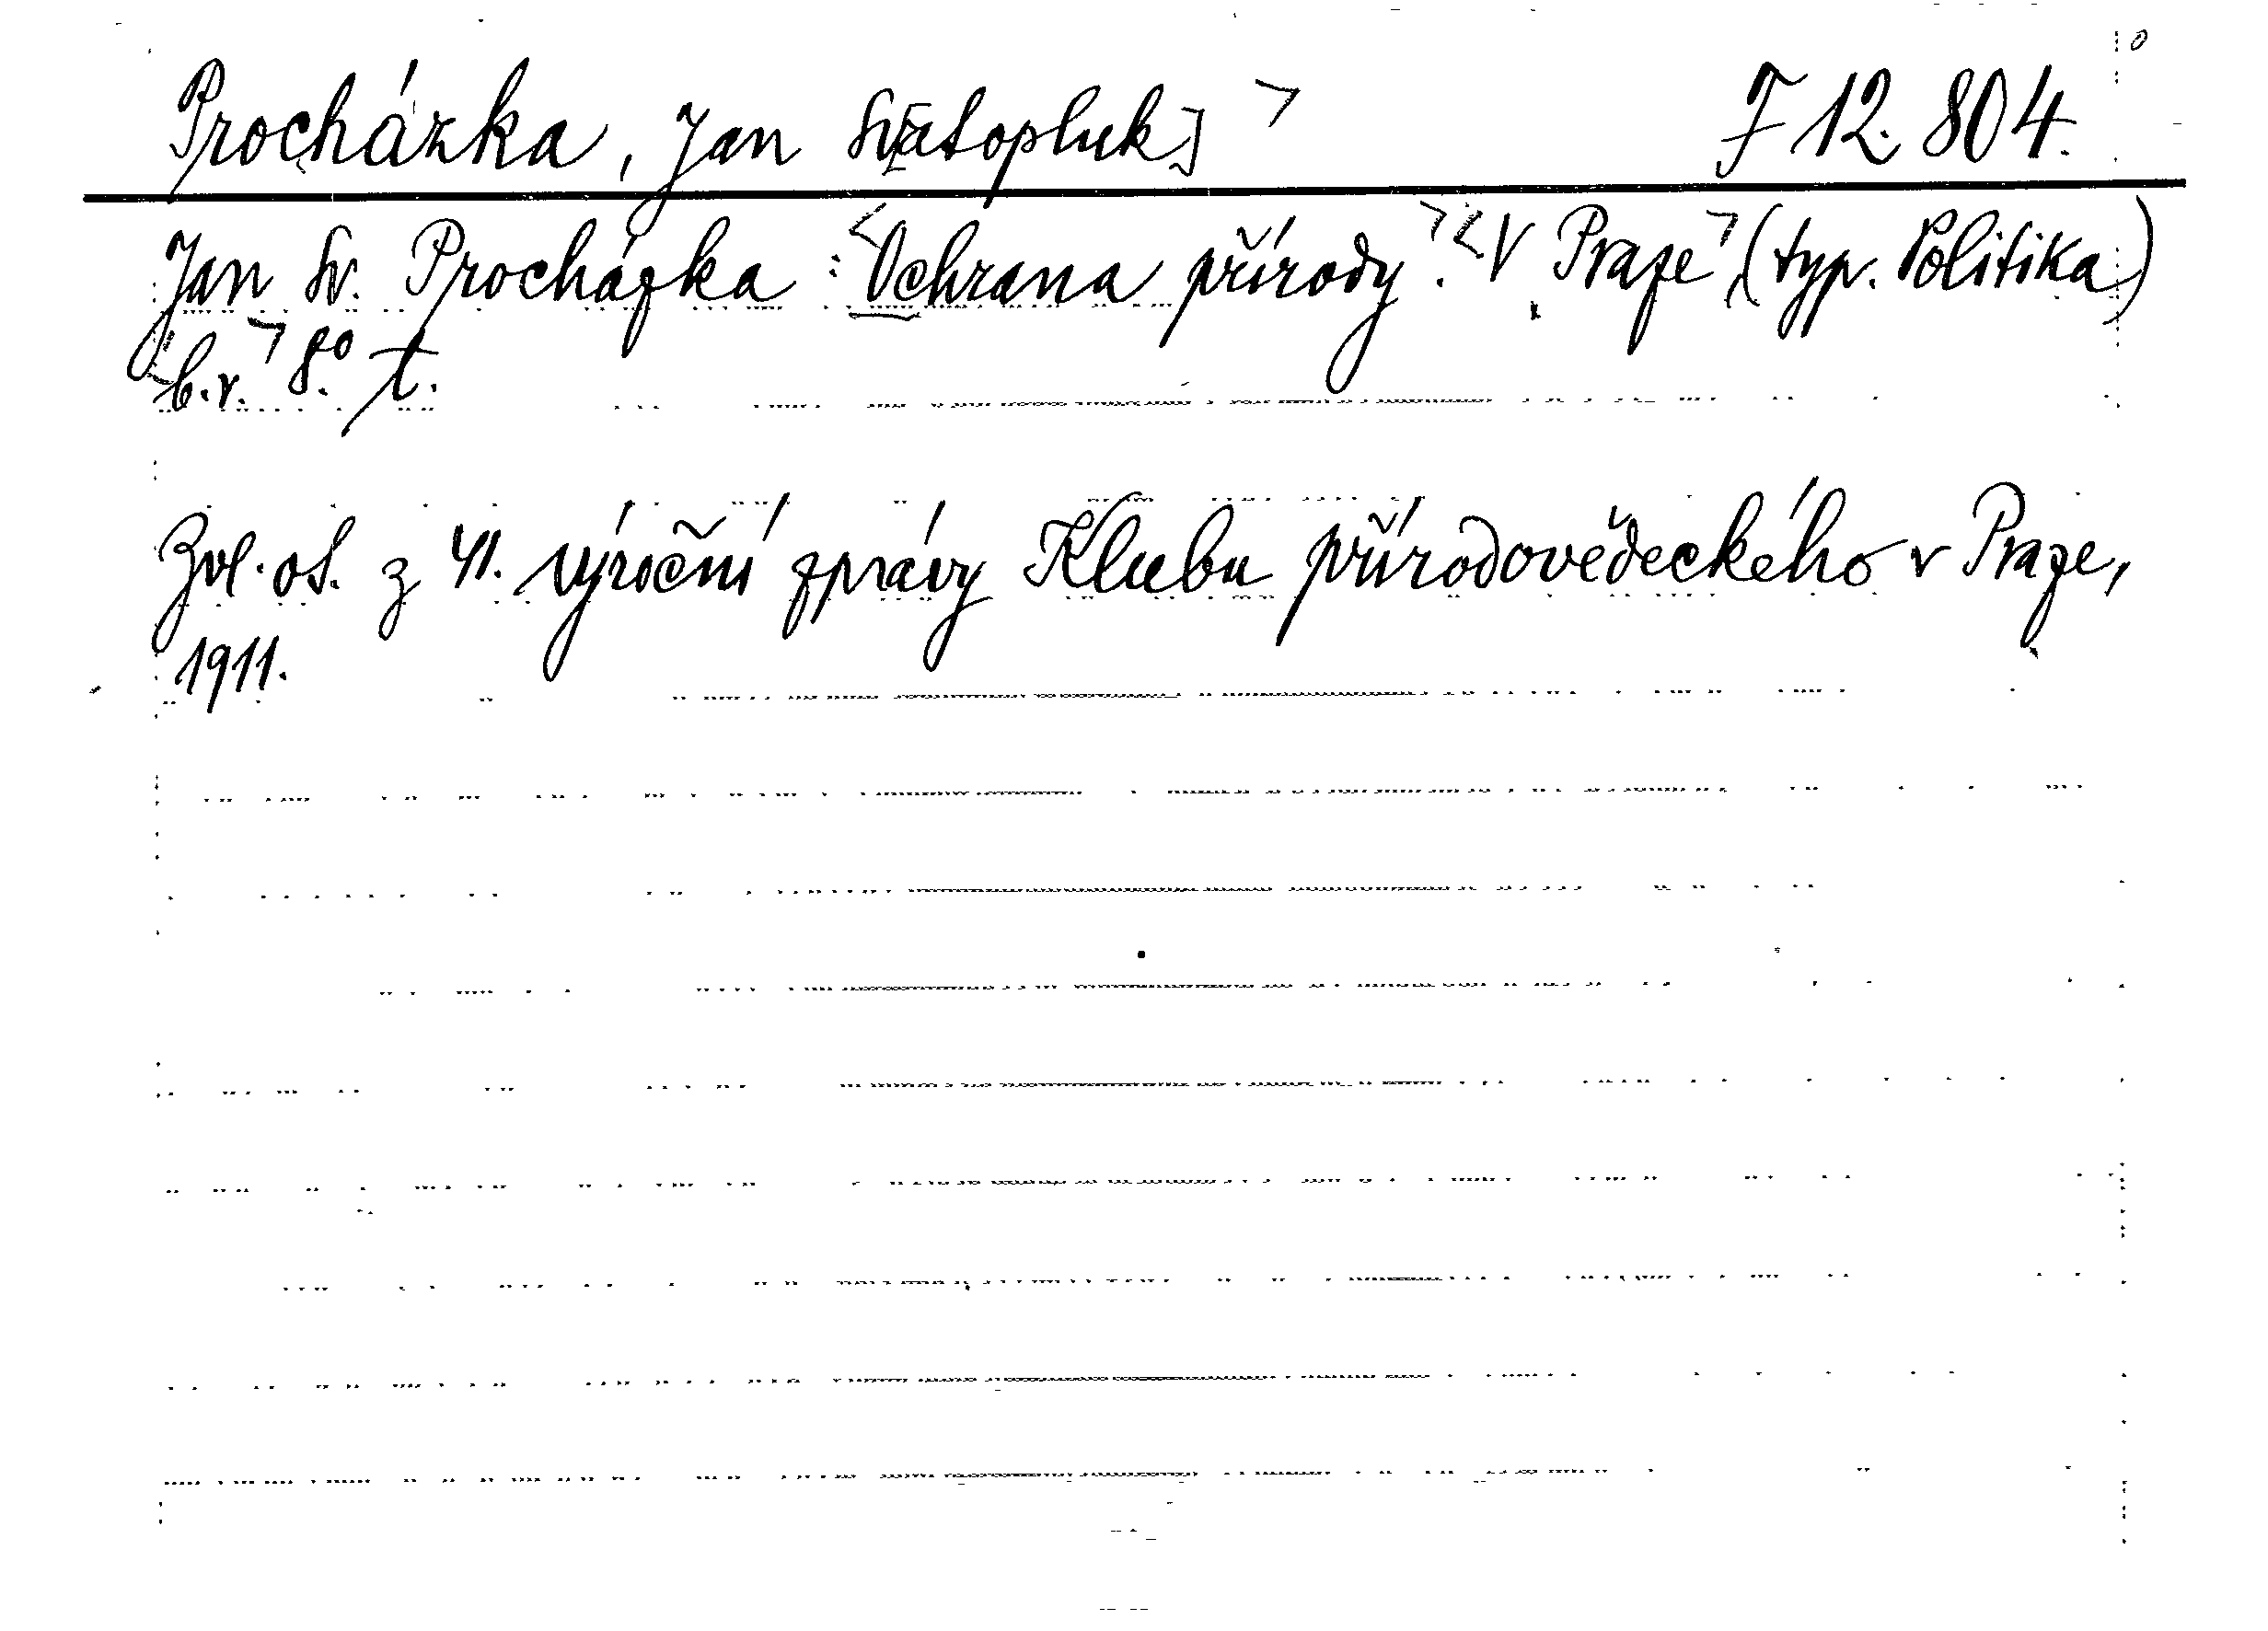 Procházka, Jan Sv[atopluk] > F 12.804.
Jan Sv. Procházka: <Ochrana přírody.> <V Praze> (typ. Politika)
<b.r.> 8.° t.
Zvl. ot. z 41. výroční zprávy Klubu přírodovědeckého v Praze,
1911.